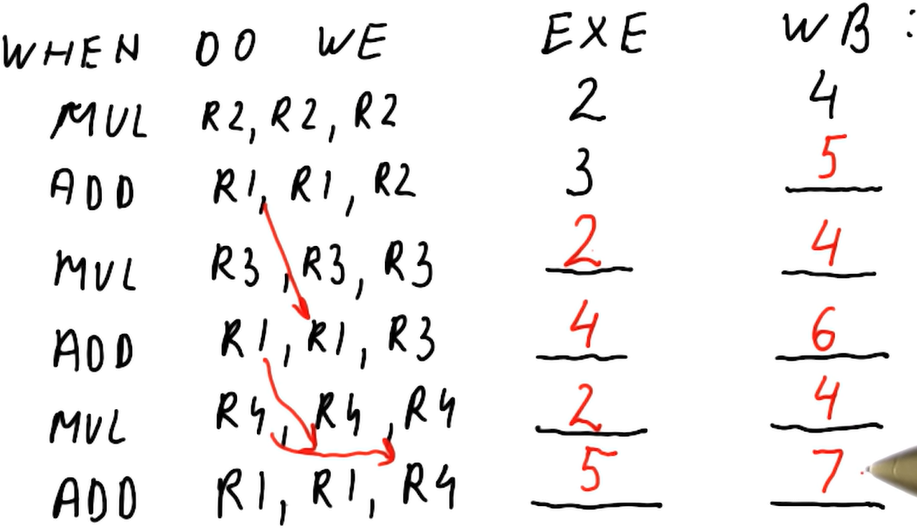 WHEN DO WE EXE WB :
MUL R2, R2, R2 2 4
ADD R1, R1, R2 3 5
MUL R3, R3, R3 2 4
ADD R1, R1, R3 4 6
MUL R4, R4, R4 2 4
ADD R1, R1, R4 5 7